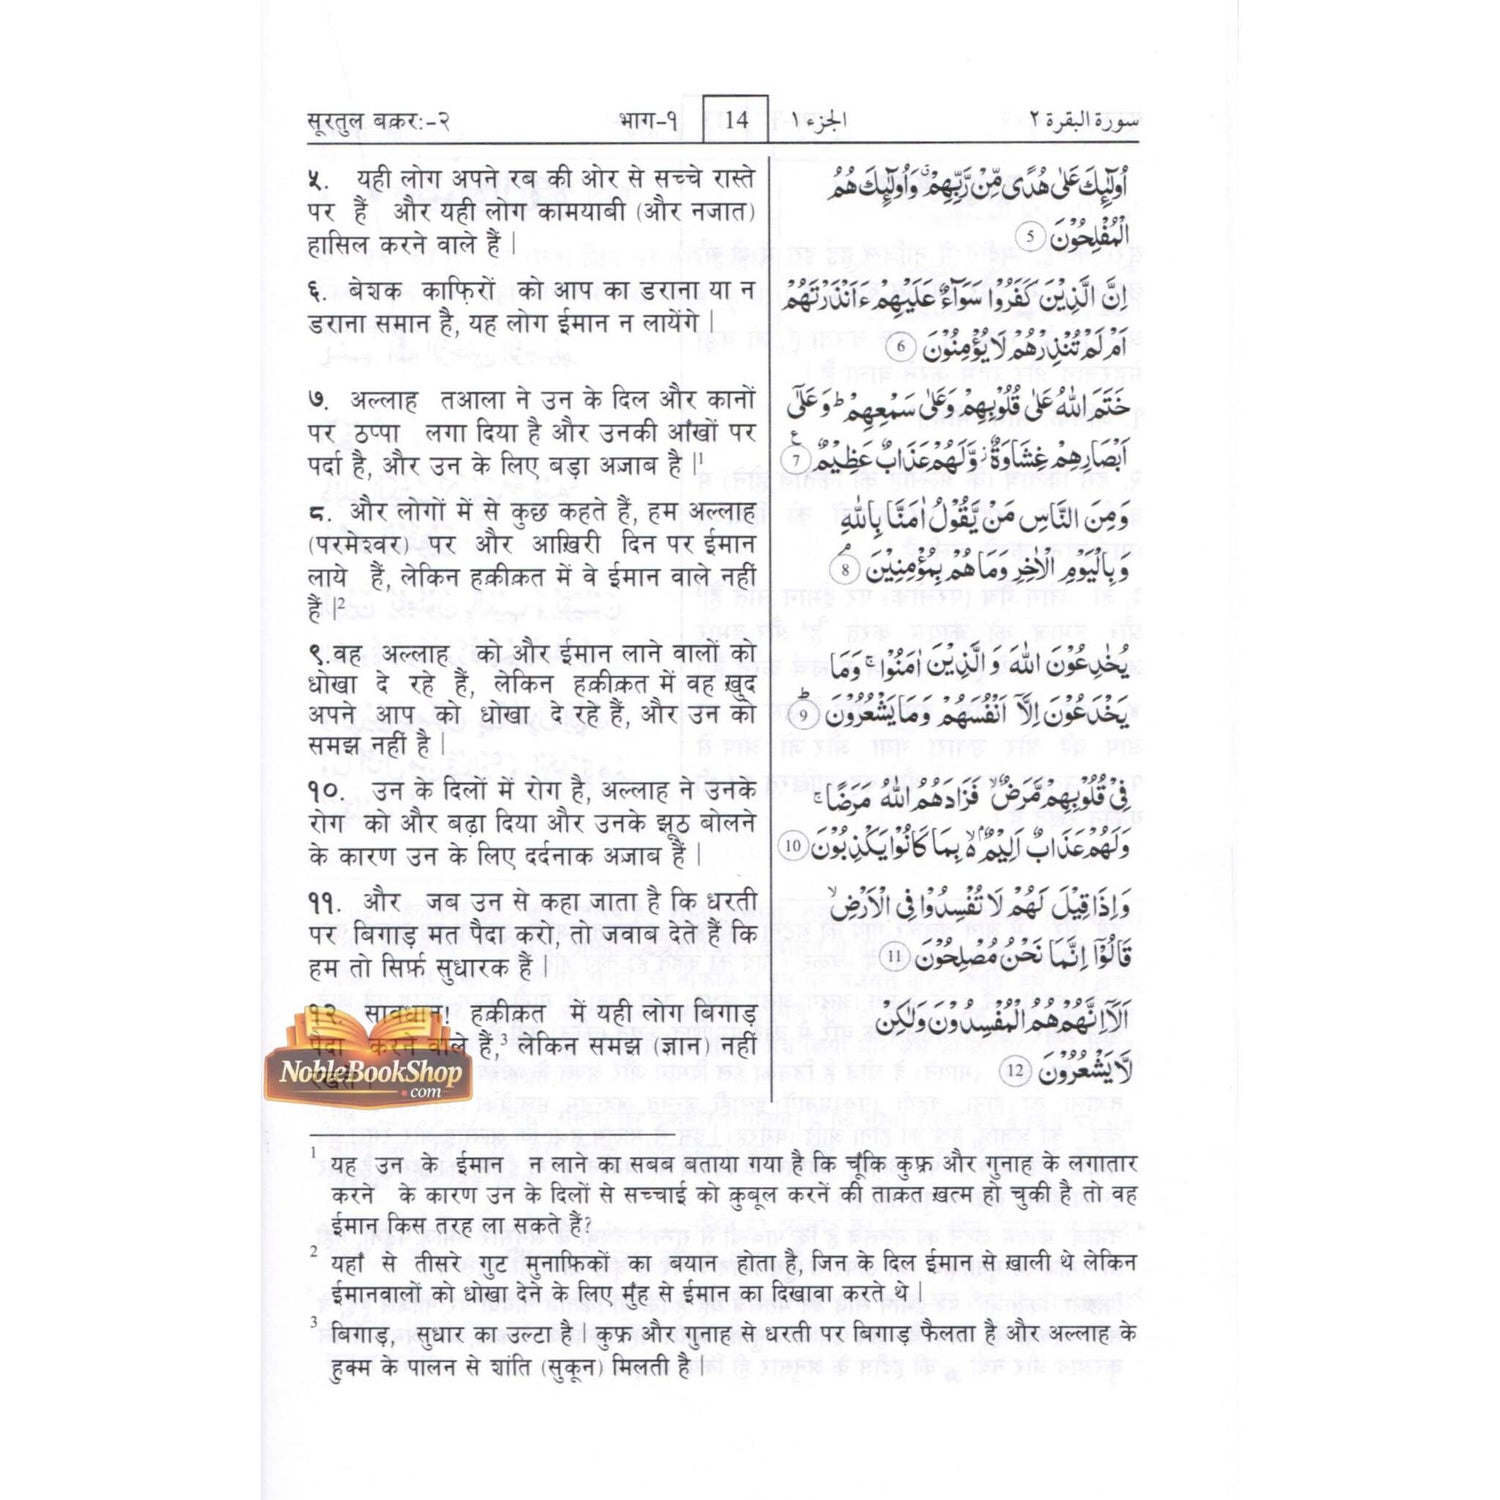 सूरतुल बक़र:-२ भाग-१ 14 الجزء ١ سورة البقرة ٢
५. यही लोग अपने रब की ओर से सच्चे रास्ते
पर हैं और यही लोग कामयाबी (और नजात)
हासिल करने वाले हैं |
६. बेशक काफ़िरों को आप का डराना या न
डराना समान है, यह लोग ईमान न लायेंगे |
७. अल्लाह तआला ने उन के दिल और कानों
पर ठप्पा लगा दिया है और उनकी आँखों पर
पर्दा है, और उन के लिए बड़ा अज़ाब है |¹
८. और लोगों में से कुछ कहते हैं, हम अल्लाह
(परमेश्वर) पर और आख़िरी दिन पर ईमान
लाये हैं, लेकिन हक़ीक़त में वे ईमान वाले नहीं
हैं |²
९.वह अल्लाह को और ईमान लाने वालों को
धोखा दे रहे हैं, लेकिन हक़ीक़त में वह ख़ुद
अपने आप को धोखा दे रहे हैं, और उन को
समझ नहीं है |
१०. उन के दिलों में रोग है, अल्लाह ने उनके
रोग को और बढ़ा दिया और उनके झूठ बोलने
के कारण उन के लिए दर्दनाक अज़ाब हैं |
११. और जब उन से कहा जाता है कि धरती
पर बिगाड़ मत पैदा करो, तो जवाब देते हैं कि
हम तो सिर्फ़ सुधारक हैं |
१२. सावधान! हक़ीक़त में यही लोग बिगाड़
पैदा करने वाले हैं,³ लेकिन समझ (ज्ञान) नहीं
रखते |
اُولٰٓئِكَ عَلٰى هُدًى مِّنْ رَّبِّهِمْ ۗ وَاُولٰٓئِكَ هُمُ
الْمُفْلِحُوْنَ 5
اِنَّ الَّذِيْنَ كَفَرُوْا سَوَآءٌ عَلَيْهِمْ ءَاَنْذَرْتَهُمْ
اَمْ لَمْ تُنْذِرْهُمْ لَا يُؤْمِنُوْنَ 6
خَتَمَ اللّٰهُ عَلٰى قُلُوْبِهِمْ وَعَلٰى سَمْعِهِمْ ؕ وَعَلٰٓى
اَبْصَارِهِمْ غِشَاوَةٌ ؗ وَّلَهُمْ عَذَابٌ عَظِيْمٌ 7
وَمِنَ النَّاسِ مَنْ يَّقُوْلُ اٰمَنَّا بِاللّٰهِ
وَبِالْيَوْمِ الْاٰخِرِ وَمَا هُمْ بِمُؤْمِنِيْنَ 8
يُخٰدِعُوْنَ اللّٰهَ وَالَّذِيْنَ اٰمَنُوْا ۚ وَمَا
يَخْدَعُوْنَ اِلَّآ اَنْفُسَهُمْ وَمَا يَشْعُرُوْنَ 9
فِيْ قُلُوْبِهِمْ مَّرَضٌ ۙ فَزَادَهُمُ اللّٰهُ مَرَضًا ۚ
وَلَهُمْ عَذَابٌ اَلِيْمٌۢ ۙ بِمَا كَانُوْا يَكْذِبُوْنَ 10
وَاِذَا قِيْلَ لَهُمْ لَا تُفْسِدُوْا فِى الْاَرْضِ ۙ
قَالُوْٓا اِنَّمَا نَحْنُ مُصْلِحُوْنَ 11
اَلَآ اِنَّهُمْ هُمُ الْمُفْسِدُوْنَ وَلٰكِنْ
لَّا يَشْعُرُوْنَ 12
NobleBookShop
.com
¹ यह उन के ईमान न लाने का सबब बताया गया है कि चूंकि कुफ़्र और गुनाह के लगातार
करने के कारण उन के दिलों से सच्चाई को क़ुबूल करनें की ताक़त ख़त्म हो चुकी है तो वह
ईमान किस तरह ला सकते हैं?
² यहाँ से तीसरे गुट मुनाफ़िकों का बयान होता है, जिन के दिल ईमान से ख़ाली थे लेकिन
ईमानवालों को धोखा देने के लिए मुंह से ईमान का दिखावा करते थे |
³ बिगाड़, सुधार का उल्टा है | कुफ़्र और गुनाह से धरती पर बिगाड़ फैलता है और अल्लाह के
हुक्म के पालन से शांति (सुकून) मिलती है |